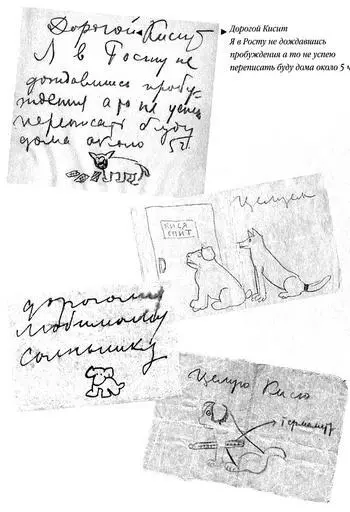 Дорогой Кисит
Я в Росту не
дождавшись пробу-
ждения а то не успею
переписать буду
дома около 5 ч.
Дорогой Кисит
Я в Росту не дождавшись
пробуждения а то не успею
переписать буду дома около 5 ч
Целуем
КИСЯ
СПИТ
дорогому
любимому
солнышику
Целую Кисю
термометр